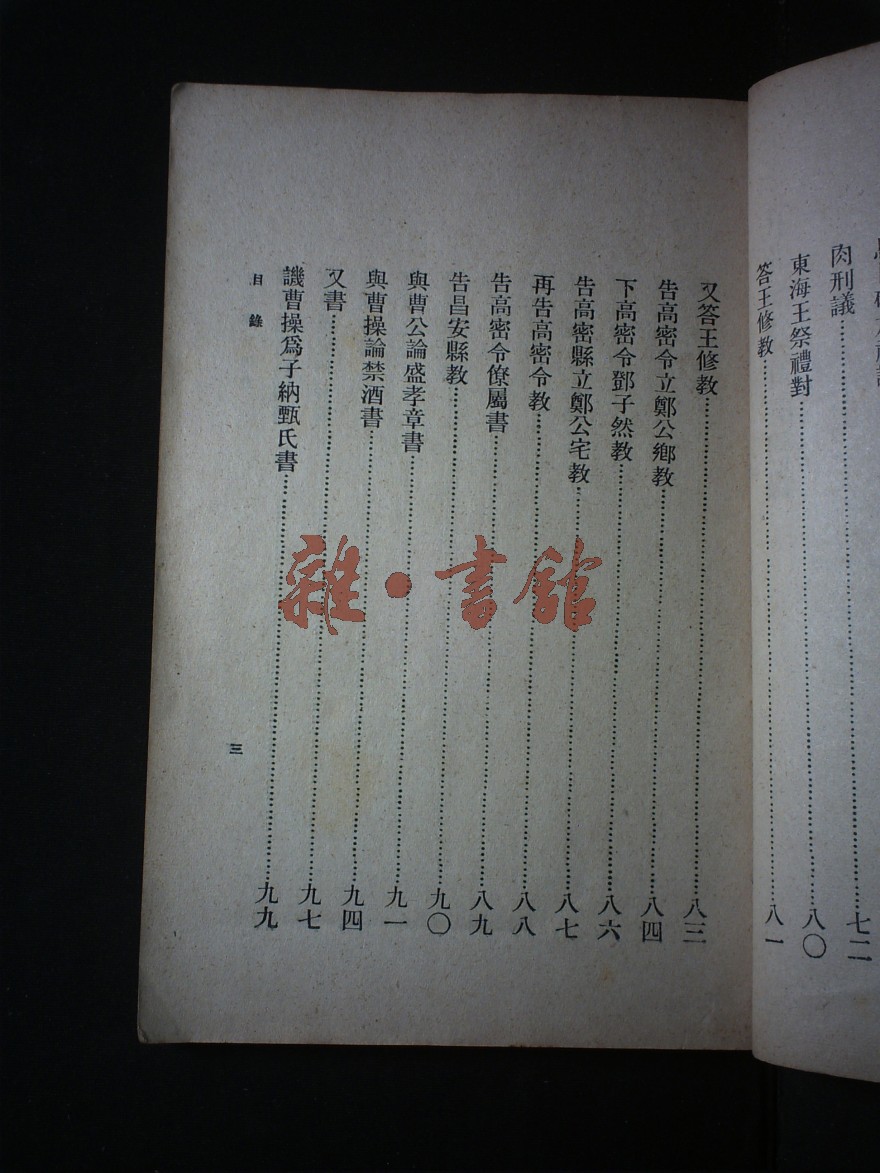 肉刑議……七二
東海王祭禮對……八〇
答王修教……八一
又答王修教……八三
告高密令立鄭公鄉教……八四
下高密令鄧子然教……八六
告高密縣立鄭公宅教……八七
再告高密令教……八八
告高密令僚屬書……八九
告昌安縣教……九〇
與曹公論盛孝章書……九一
與曹操論禁酒書……九四
又書……九七
譏曹操爲子納甄氏書……九九
目錄
三
雜·書館